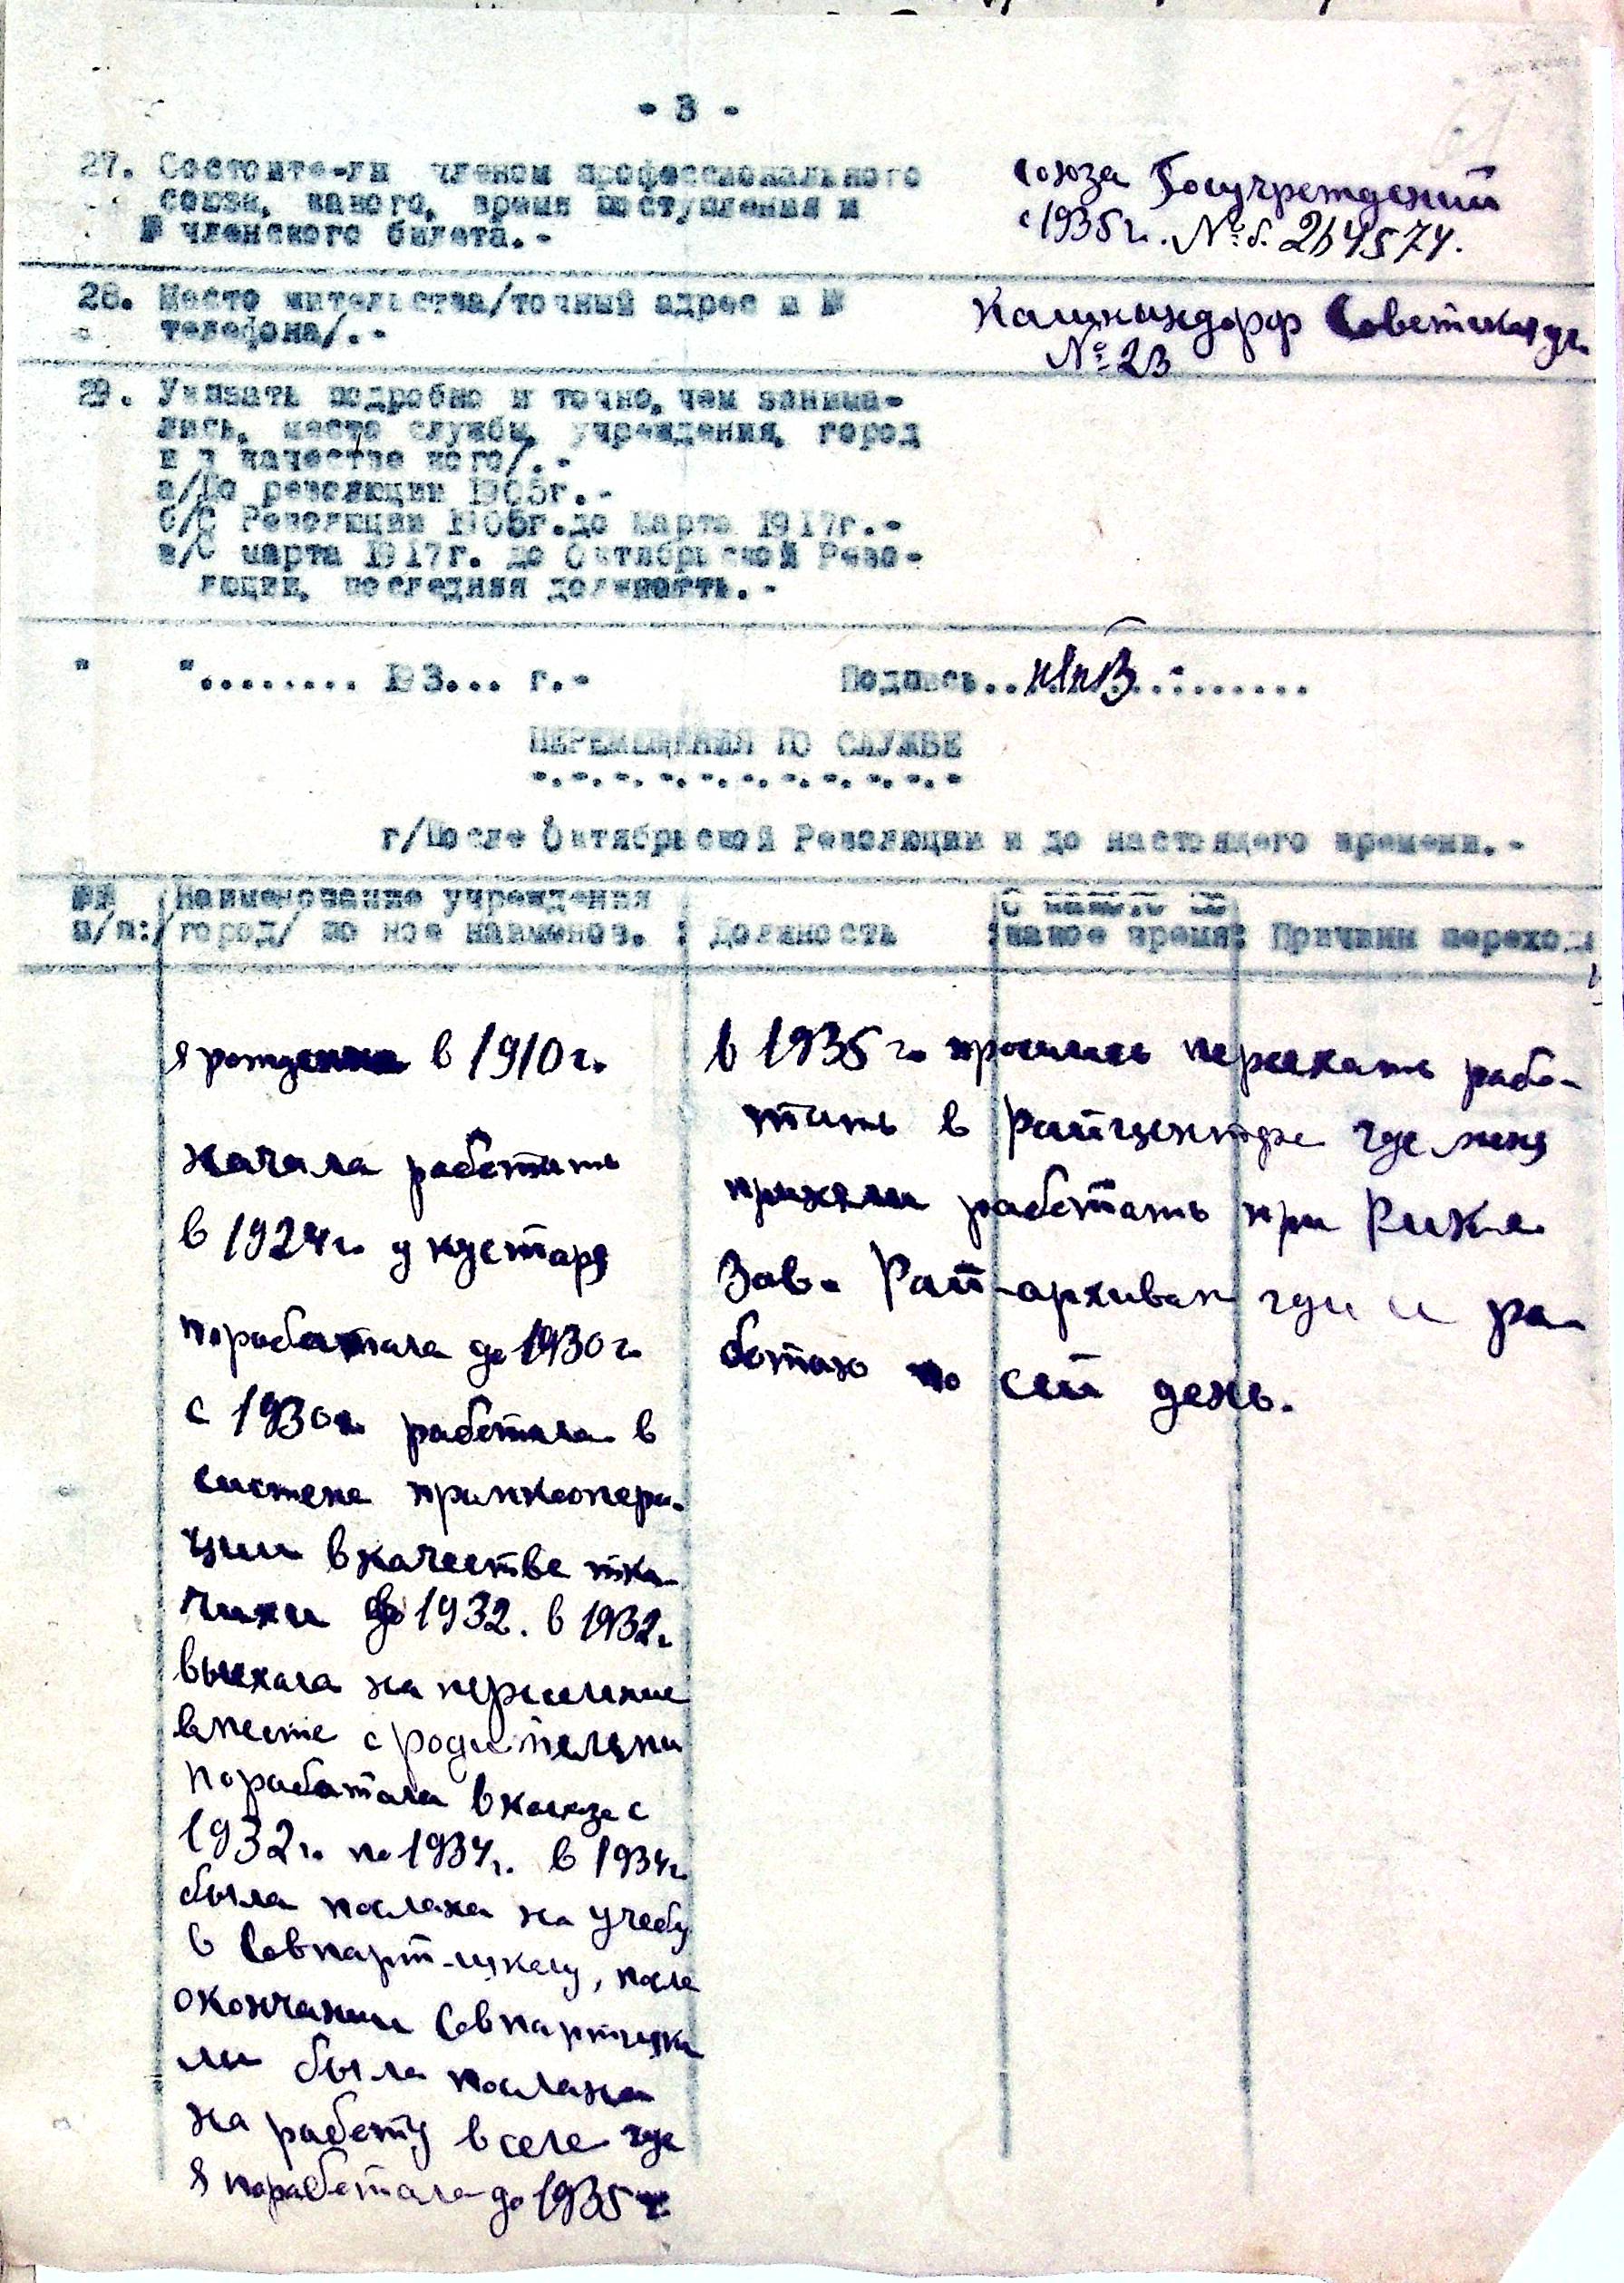 - 3 -
27. Состоите-ли членом профессионального
союза, какого, время поступления и
№ членского билета.-
союза Госучреждений
с 1935 г. №б. 264574.
28. Место жительства/точный адрес и №
телефона/.-
Калининдорф Советская ул.
№ 23
29. Указать подробно и точно, чем занима-
лись, место службы, учреждения, город
и в качестве кого/.-
а/До революции 1905г.-
б/С Революции 1905г.до марта 1917г.-
в/С марта 1917г. до Октябрьской Рево-
люции, последняя должность.-
" "........ 193... г.-
Подпись..
ПЕРЕМЕЩЕНИЯ ПО СЛУЖБЕ
г/После Октябрьской Революции и до настоящего времени.-
№№ Наименование учреждения С какого по
п/п:/город/ полное наименов. : Должность :какое время: Причини переход
я рождения в 1910г.
начала работать
в 1924г. у кустаря
поработала до 1930г.
с 1930г. работала в
системе промкоопера-
ции в качестве тка-
чихи до 1932. в 1932г.
выехала на переселение
вместе с родителями
поработала в колхозе с
1932г. по 1934г. в 1934г.
была послана на учебу
в Совпарт-школу, после
окончании Совпартшко
ли была послана
на работу в селе где
я поработала до 1935 г.
в 1935 г. просилась переехать рабо-
тать в Райцентре где меня
приняли работать при Рике
Зав. Рай-архивом где и ра-
ботаю по сей день.